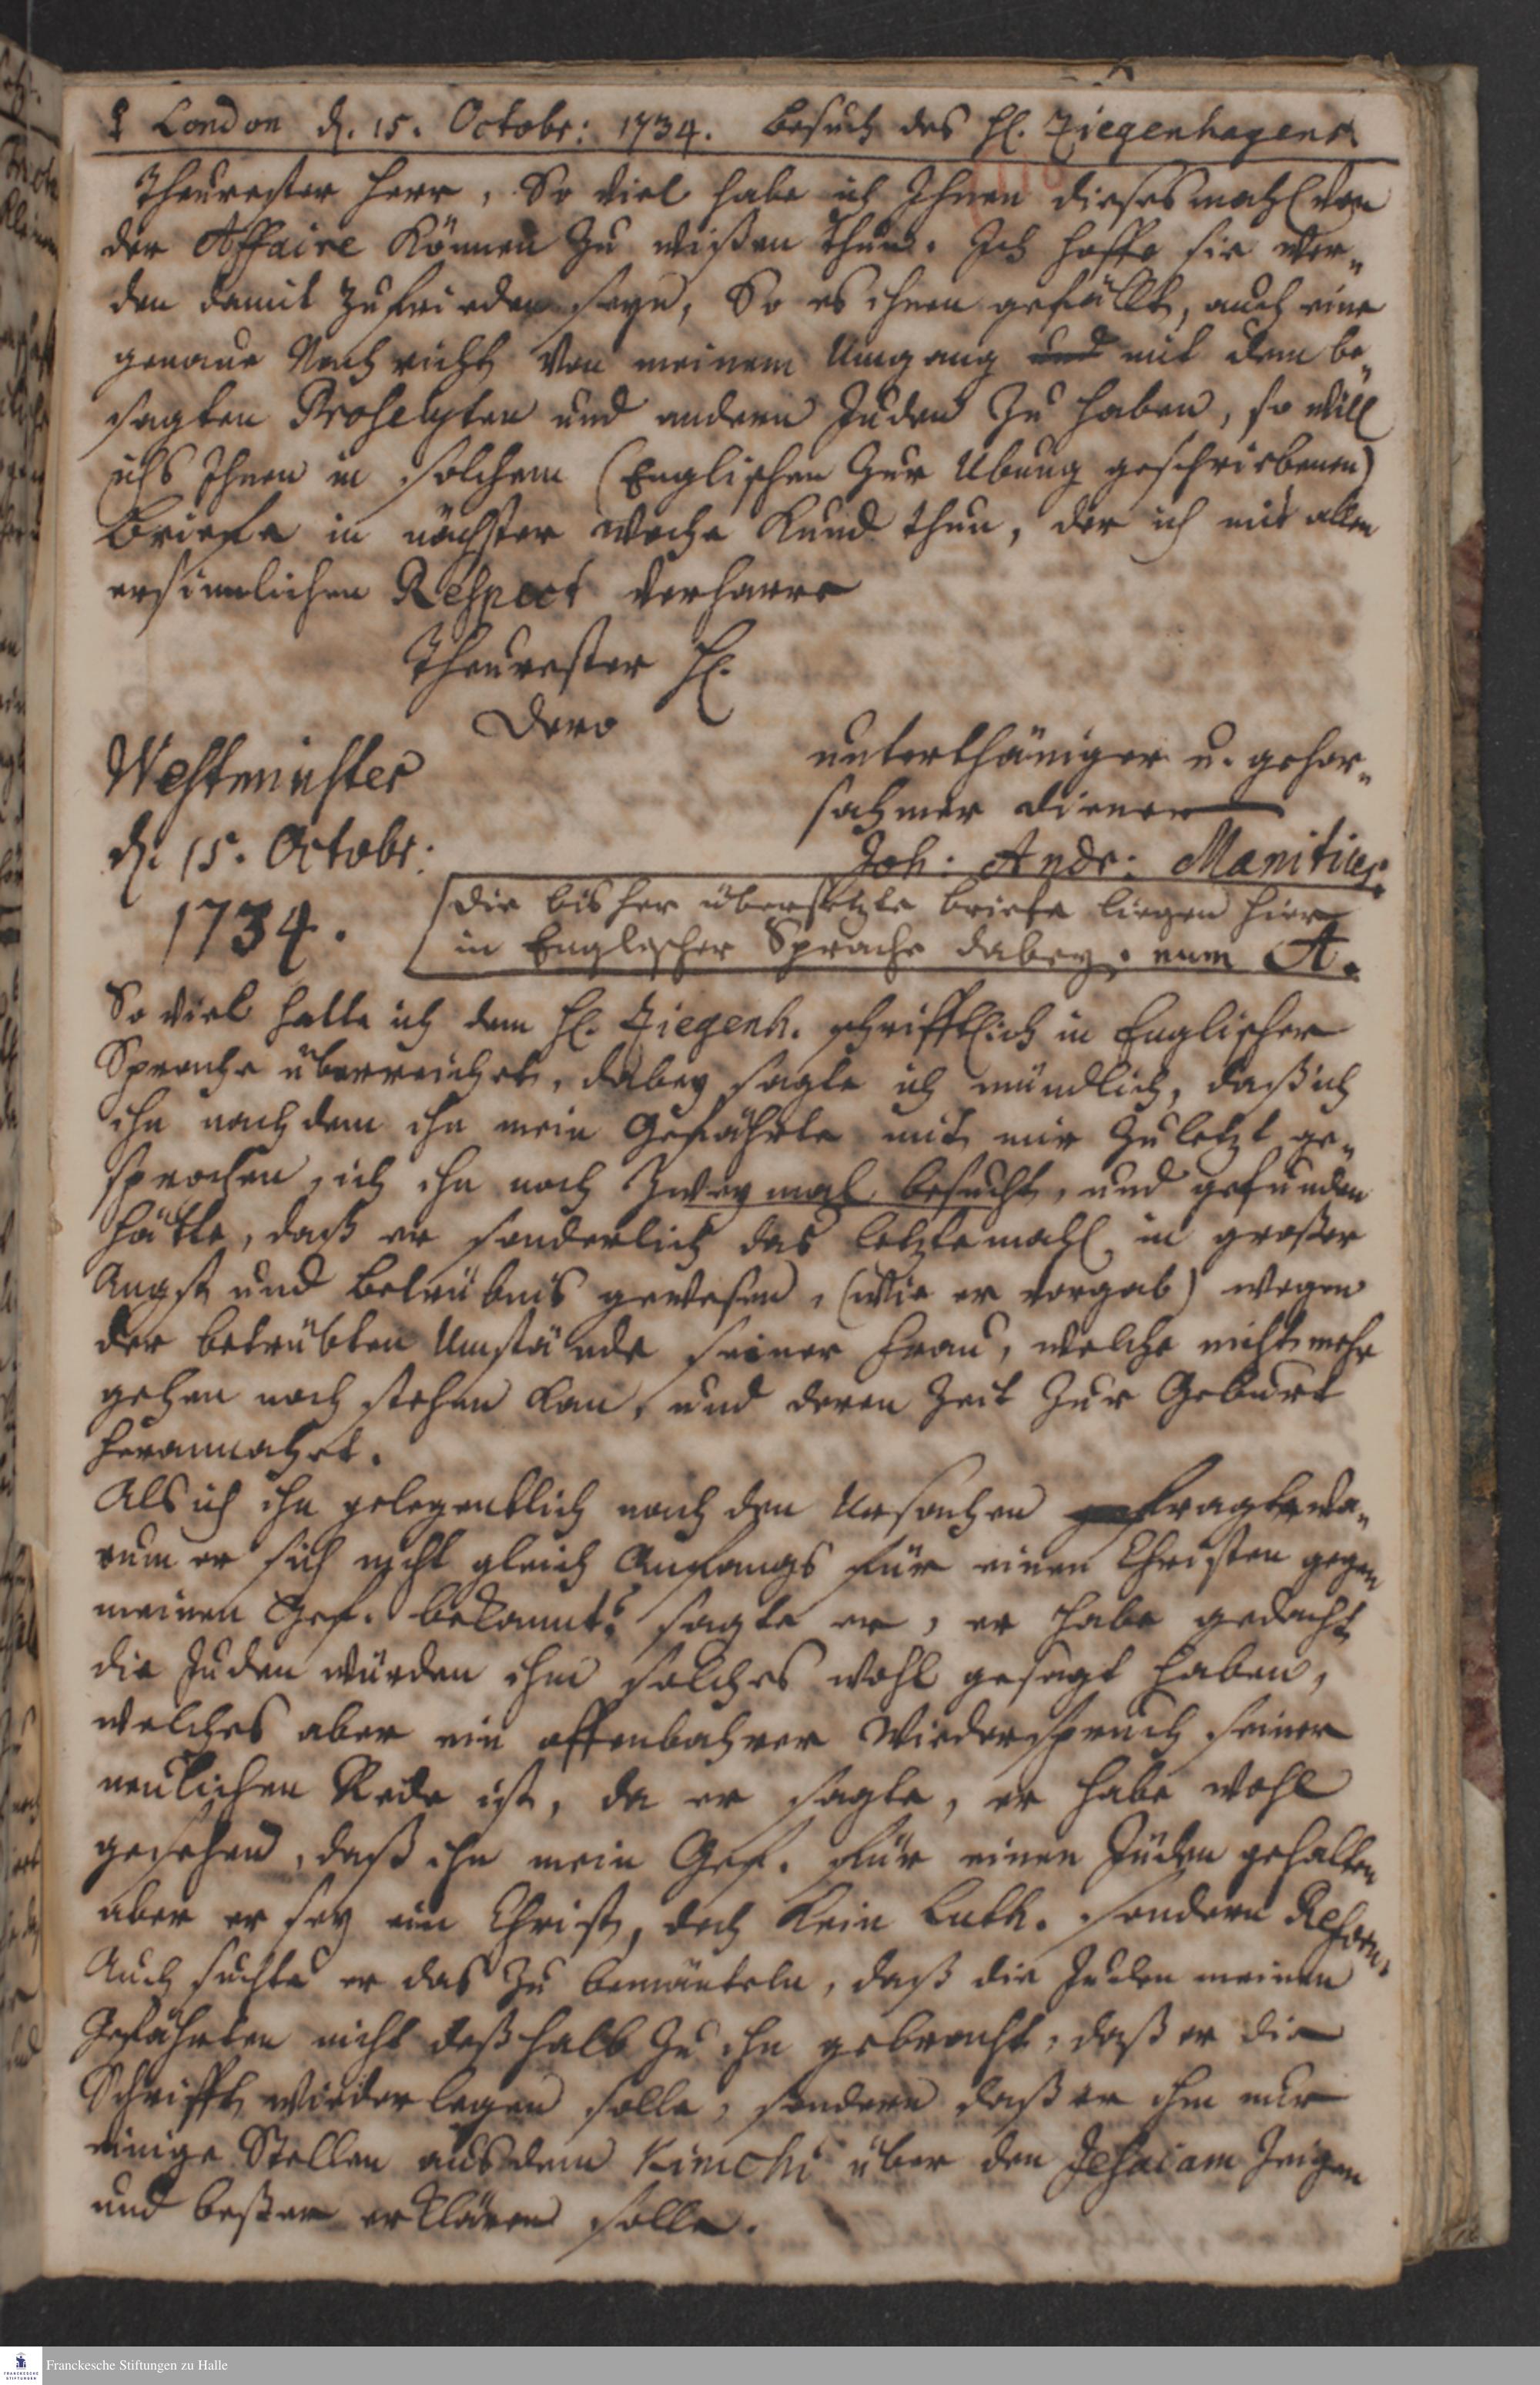 ☿ London d. 15. Octobr: 1734. Besuch des H. Ziegenhagens
Theurester Herr, So viel habe ich Ihnen dieses mahl von
der Affaire können zu wißen thun. Ich hoffe sie wer„
den damit zufrieden seyn, So es ihnen gefällt, auch eine
genaue Nachricht von meinem Umgang und mit dem be„
sagten Proselyten und andern Juden zu haben, so will
ichs Ihnen in solchem (Englischen zur Ubung geschriebenen)
Briefe in nächster Woche kund thun, der ich mit allen
ersinnlichen Respect verharre
Theurester H.
Dero
Westminster
unterthäniger u. gehor„
sahmer diener
d. 15. Octobr:
Joh: Andr: Manitius.
1734.
Die bisher übersetzte Briefe liegen hier
in Englischer Sprache dabey. num A.
So viel hatte ich dem H. Ziegenh. schrifftlich in Englischer
Sprache überreichet, dabey sagte ich mündlich, daß ich
ihn nach dem ihn mein Gefährte mit mir zuletzt ge„
sprochen, ich ihn noch zweymal besucht, und gefunden
hätte, daß er sonderlich das letztemahl in großer
Angst und Betrübnis gewesen, (wie er vorgab) wegen
der betrübten Umstände seiner Frau, welche nicht mehr
gehen noch stehen kan, und deren Zeit zur Geburt
herannahet.
Als ich ihn gelegentlich nach den Ursachen fragte wa„
rum er sich nicht gleich Anfangs für einen Christen gegen
meinen Gef. bekannt? sagte er, er habe gedacht
die Juden würden ihm solches wohl gesagt haben,
welches aber ein offenbahrer Wiederspruch seiner
neulichen Rede ist, da er sagte, er habe wohl
gesehen, daß ihn mein Gef. für einen Juden gehalten
aber er sey ein Christ, doch kein Luth. sondern Reform.
Auch suchte er das zu bemänteln, daß die Juden meinen
Gefährten nicht deßhalb zu ihn gebracht, daß er die
Schrifft wiederlegen solle, sondern daß er ihm nur
einige Stellen aus dem Kimchi über den Jesaiam zeigen
und beßer erklären solle.
Franckesche Stiftungen zu Halle